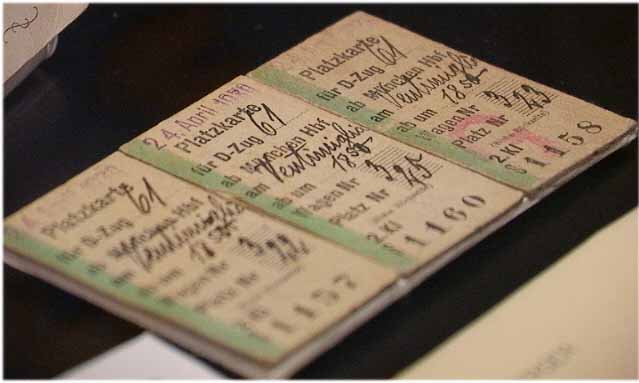 Platzkarte
für D-Zug 61
ab München Hbf
am Ventimiglia
ab um 18 50
Wagen Nr 3
Platz Nr 22
2. Kl
1157
24. April
Platzkarte
für D-Zug 61
ab München Hbf
am Ventimiglia
ab um 18 50
Wagen Nr 3
Platz Nr 25
2. Kl
1160
Platzkarte
für D-Zug 61
ab München Hbf
am Ventimiglia
ab um 18 50
Wagen Nr 3
Platz Nr 23
2. Kl
1158